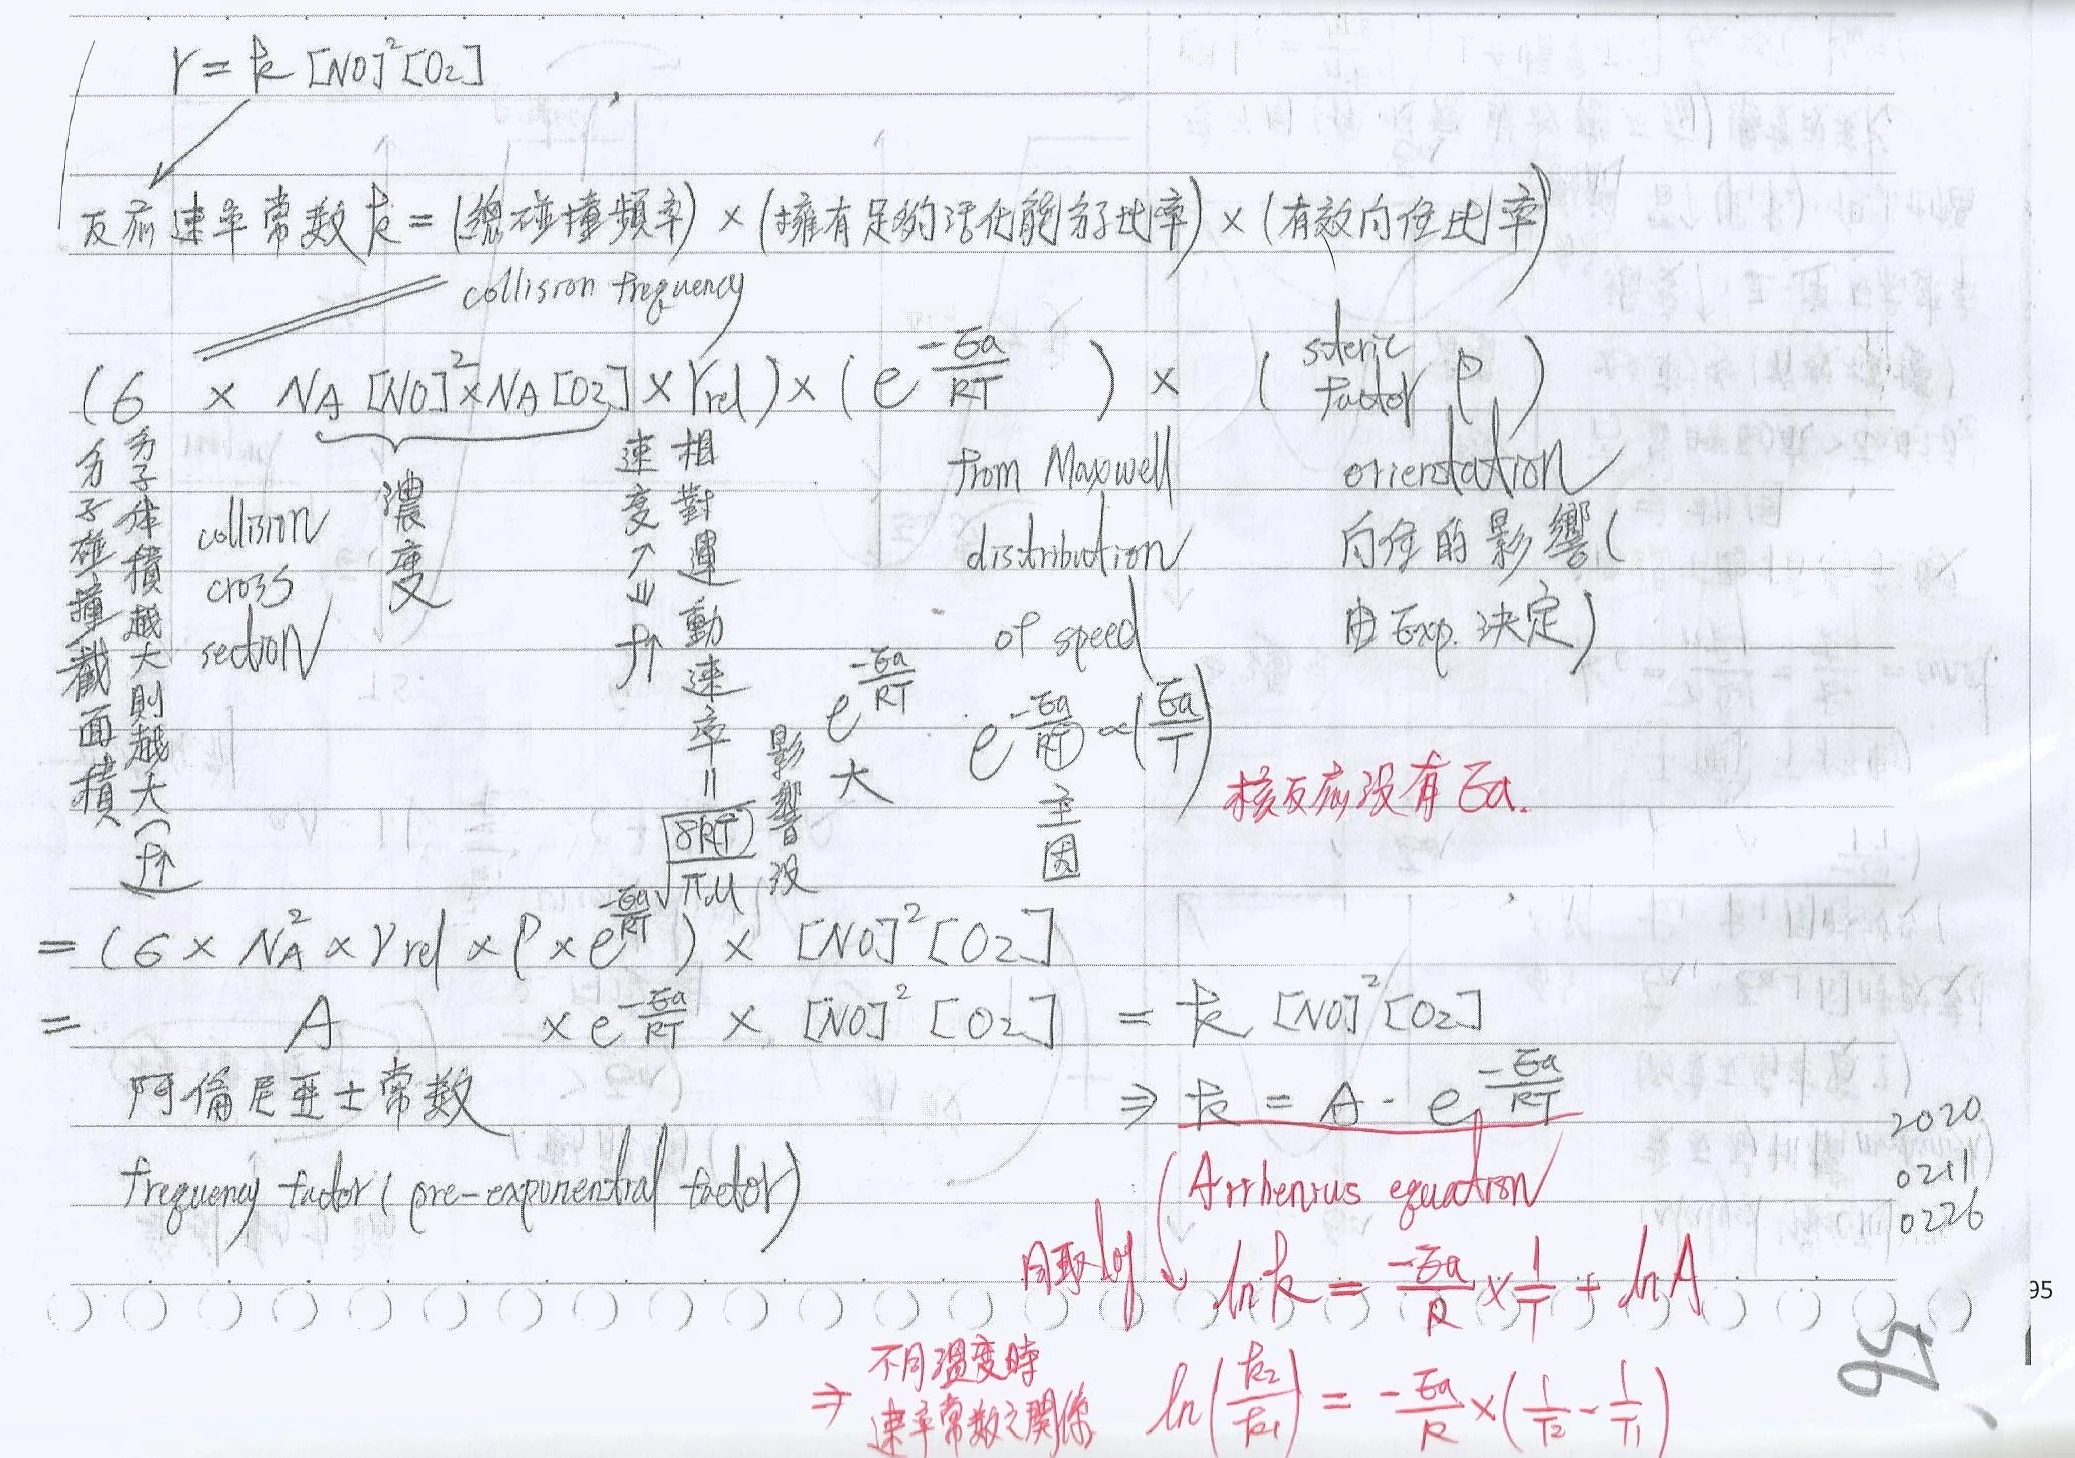 r = k [NO]²[O₂]
反應速率常數 k = (總碰撞頻率) × (擁有足夠活化能分子比率) × (有效向位比率)
collision frequency
(σ × NA [NO]² × NA [O₂] × rrel) × (e^(-Ea/RT)) × (steric factor P)
分子碰撞截面積
分子体積越大則越大(f↑)
collision
cross
section
濃度
速度↑⇒f↑
相對運動速率 = √(8RT/πμ)
影響沒
e^(-Ea/RT)
大
from Maxwell
distribution
of speed
e^(-Ea/RT) ∝ (Ea/T)
主因
orientation
向位的影響(
由 Exp. 決定)
核反應沒有 Ea.
= (σ × NA² × rrel × P × e^(-Ea/RT)) × [NO]² [O₂]
= A × e^(-Ea/RT) × [NO]² [O₂] = k [NO]² [O₂]
阿倫尼亞士常數
⇒ k = A · e^(-Ea/RT)
frequency factor (pre-exponential factor)
Arrhenius equation
2020
0211
0226
同取 log
ln k = -Ea/R × 1/T + ln A
95
⇒ 不同溫度時
速率常數之關係
ln(k₂/k₁) = -Ea/R × (1/T₂ - 1/T₁)
56